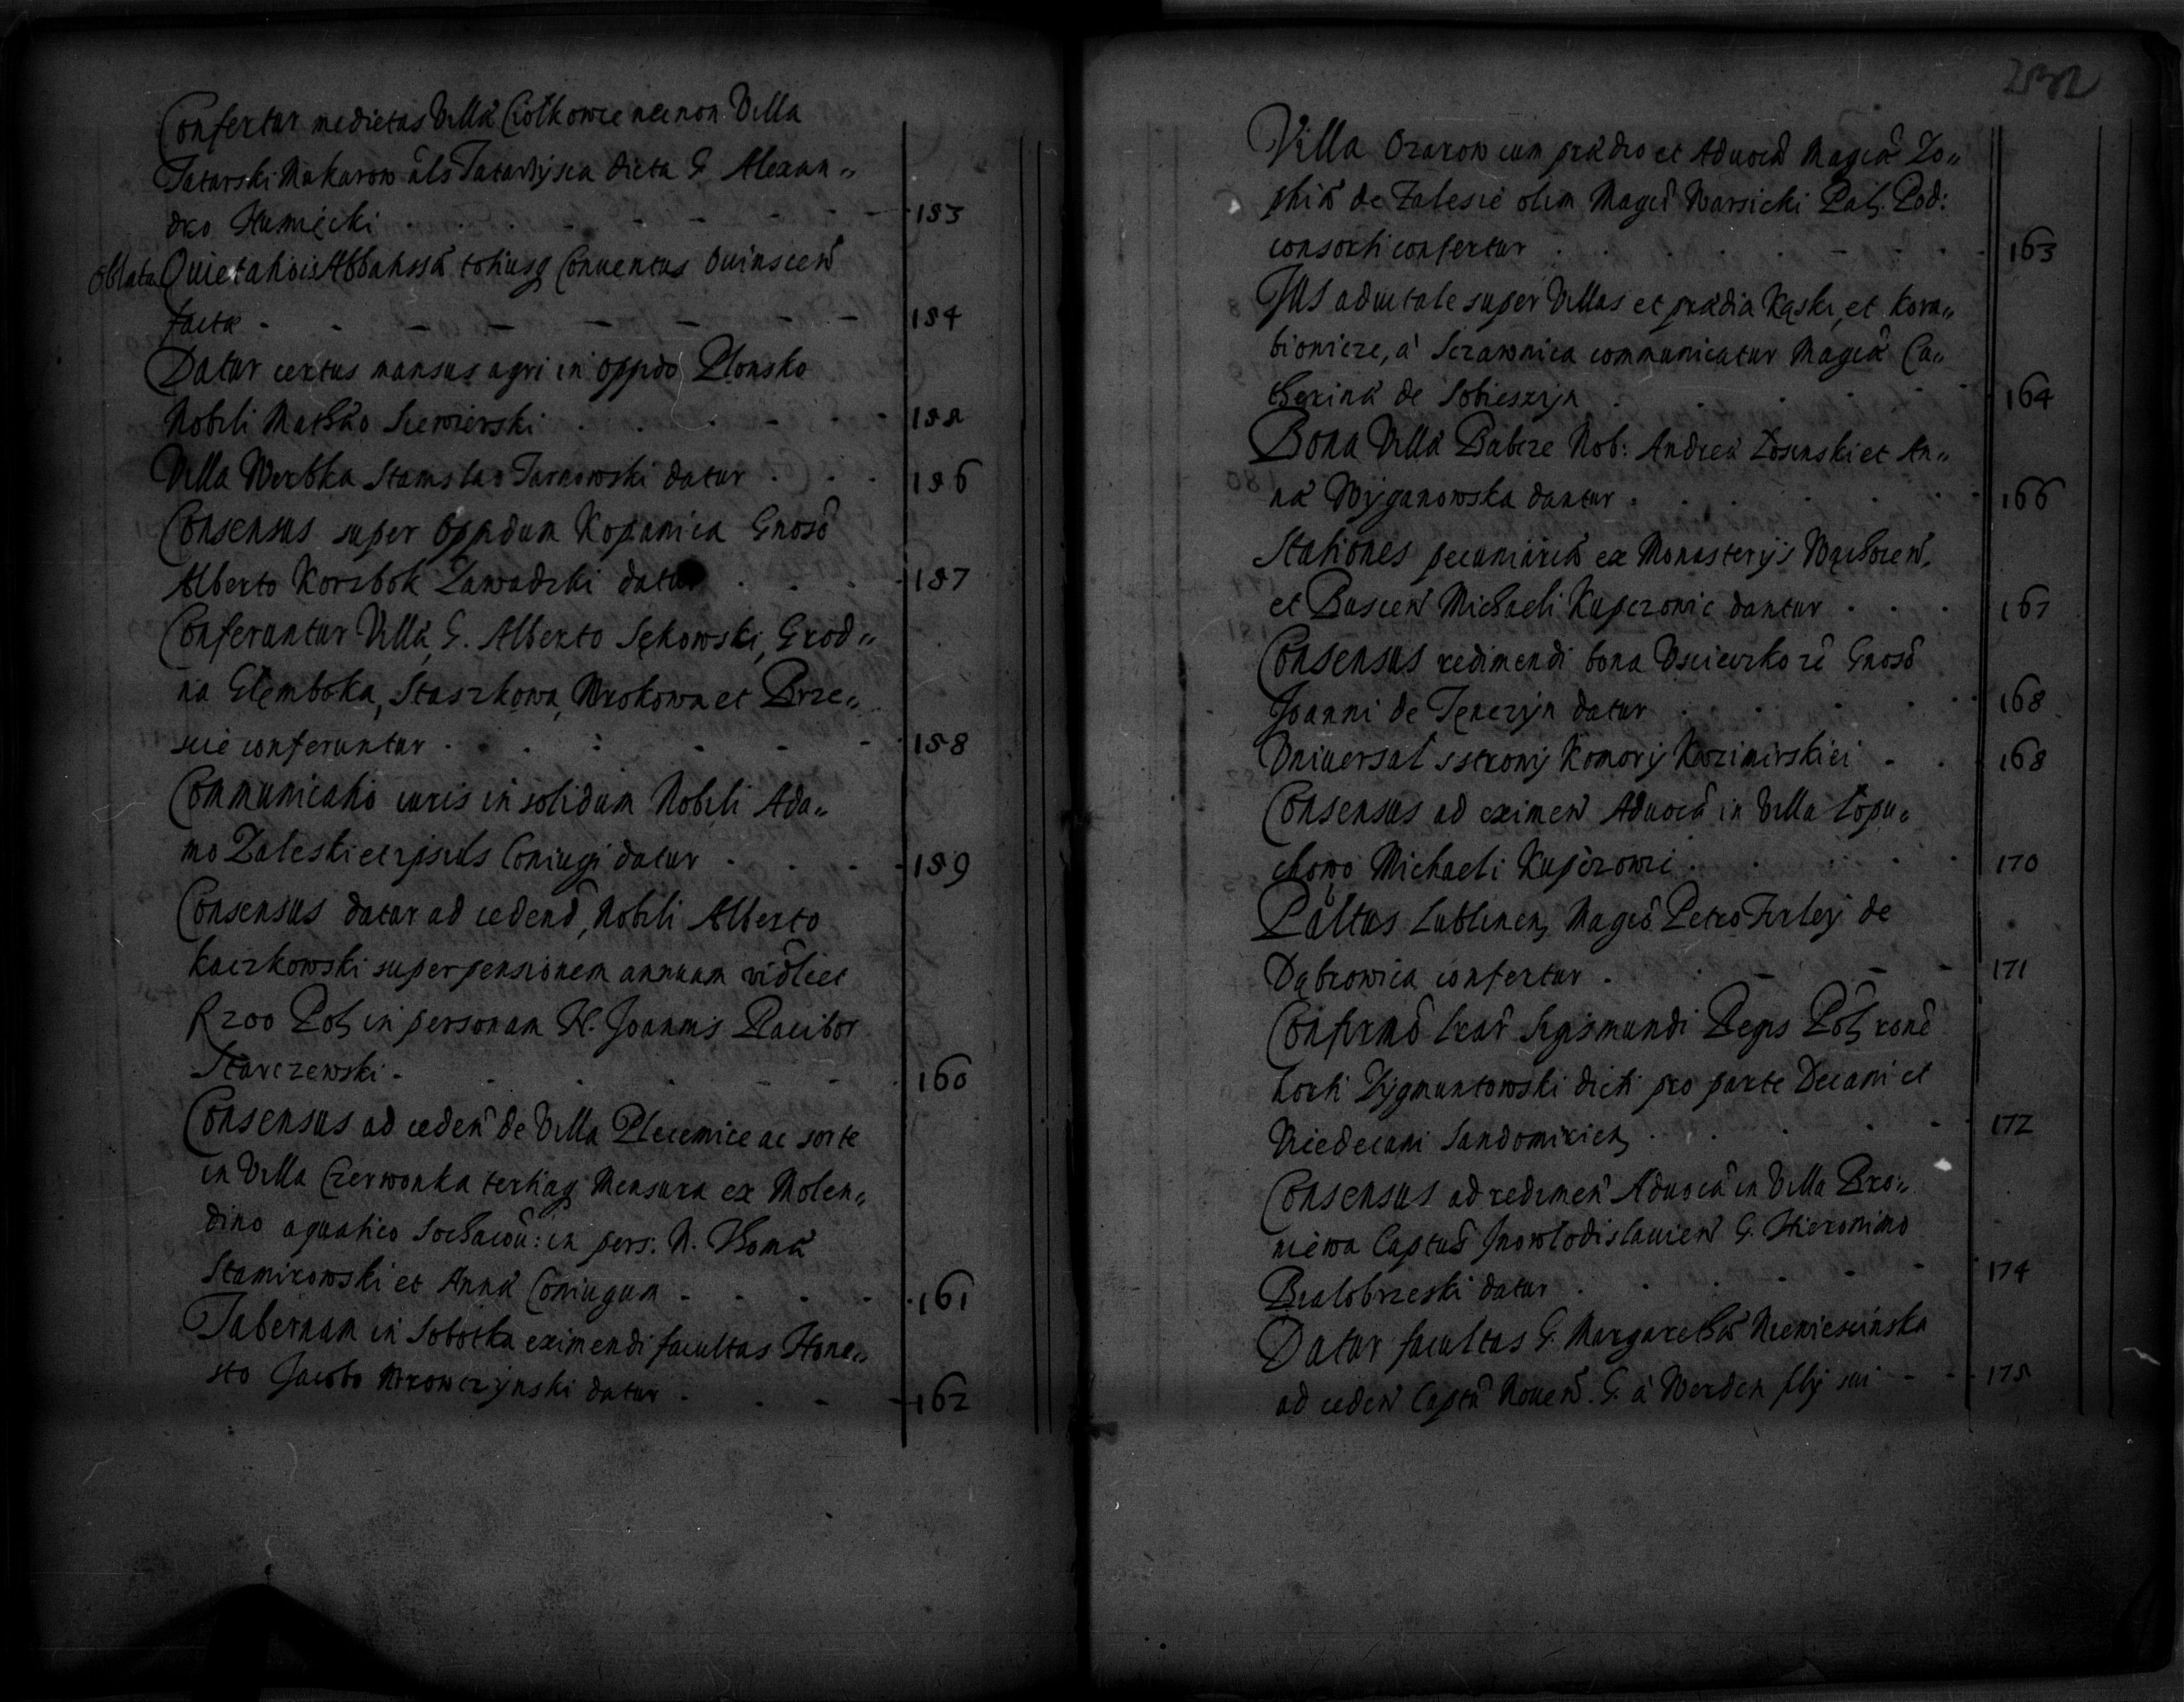 Confertur medietas Villæ Ciołkowce necnon Villa
Tatarski Makarow als Tatarzysca dicta G. Alexan„
dro Humięcki 153
Oblata Quietatiois Abbatissæ totiusq Conuentus Ouinscen
factæ 154
Datur certus mansus agri in oppido Plonsko
Nobili Mathæo Siewierski 155
Villa Werbka Stanislao Tarnowski datur 156
Consensus super Oppidum Kopanica Gnoso
Alberto Korzbok Zawadzki datur 157
Conferuntur Villæ, G. Alberto Sękowski, Grod„
na Glęmboka, Staszkowa, Mrokowa et Brze„
scie conferuntur 158
Communicatio iuris in solidum Nobili Ada„
mo Zaleski et ipsius Coniugi datur 159
Consensus datur ad cedend, Nobili Alberto
Kaczkowski super pensionem annuam vidlicet
f 200 Pol in personam N. Joannis Placibor
Starczewski 160
Consensus ad ceden de Villa Plecemice ac sorte
in Villa Czerwonka tertiaq Mensura ex Molen„
dino aquatico Sochacou: in pers: N. Thomæ
Stamirowski et Annæ Coniugum 161
Tabernam in Sobotka eximendi facultas Hone„
sto Jacobo Mrowczynski datur 162
232
Villa Ozarow cum prædio et Aduocia Magcæ Zo„
phiæ de Zalesie olim Magci Warsicki Pal. Pod:
consorti confertur 163
Jus aduitale super Villas et prædia Kąski, et Kora„
biowice, à Sczawnica communicatur Magcæ Ca„
therinæ de Sobieszyn 164
Bona Villæ Babcze Nob: Andreæ Losinski et An„
næ Wyganowska dantur 166
Stationes pecuniariæ ex Monasterijs Wąchocen,
et Buscen Michaeli Kupczowic dantur 167
Consensus redimendi bona Uscieczko ze Gnoso
Joanni de Tęnczyn datur 168
Uniuersal s strony Komory Kazimirskiei 168
Consensus ad eximen Aduocia in Villa Lopu„
chowo Michaeli Kupczowic 170
Palatus Lublinen, Magco Petro Firley de
Dąbrowica confertur 171
Confirmo lrar Sigismundi Regis Pol rone
horti Zygmuntowski dicti pro parte Decani et
Vicedecani Sandomirien 172
Consensus ad redimen Aduocia in Villa Bro„
niewa Captus Jnowlodislauien G. Hieronimo
Bialobrzeski datur 174
Datur facultas G. Margarethæ Niemiescinska
ad ceden Capta Nouen. G. à Werden flij sui 175